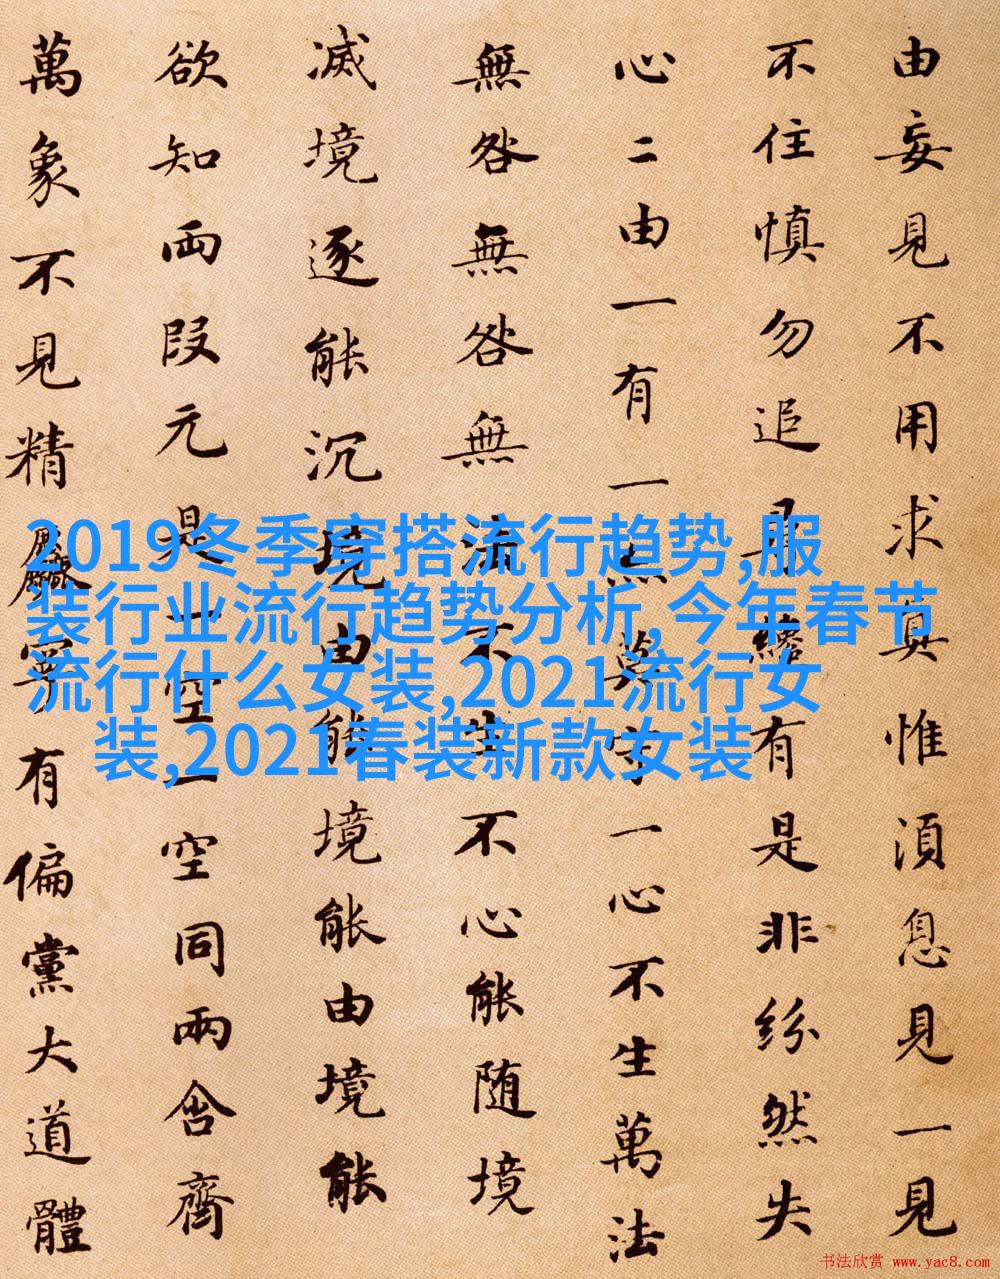 由妄見不用求真惟須息見一見
不住慎勿追尋纔有是非紛然失
心二由一有一亦莫守一心不生萬法
無咎無咎無法不生不心能随境
滅境逐能沉境由能境能由境能
欲知両段元是一空一空同兩含齊
萬象不見精麤寧有偏黨大道體
2019冬季穿搭流行趋势,服
装行业流行趋势分析,今年春节
流行什么女装,2021流行女
装,2021春装新款女装
书法欣赏 www.yac8.com